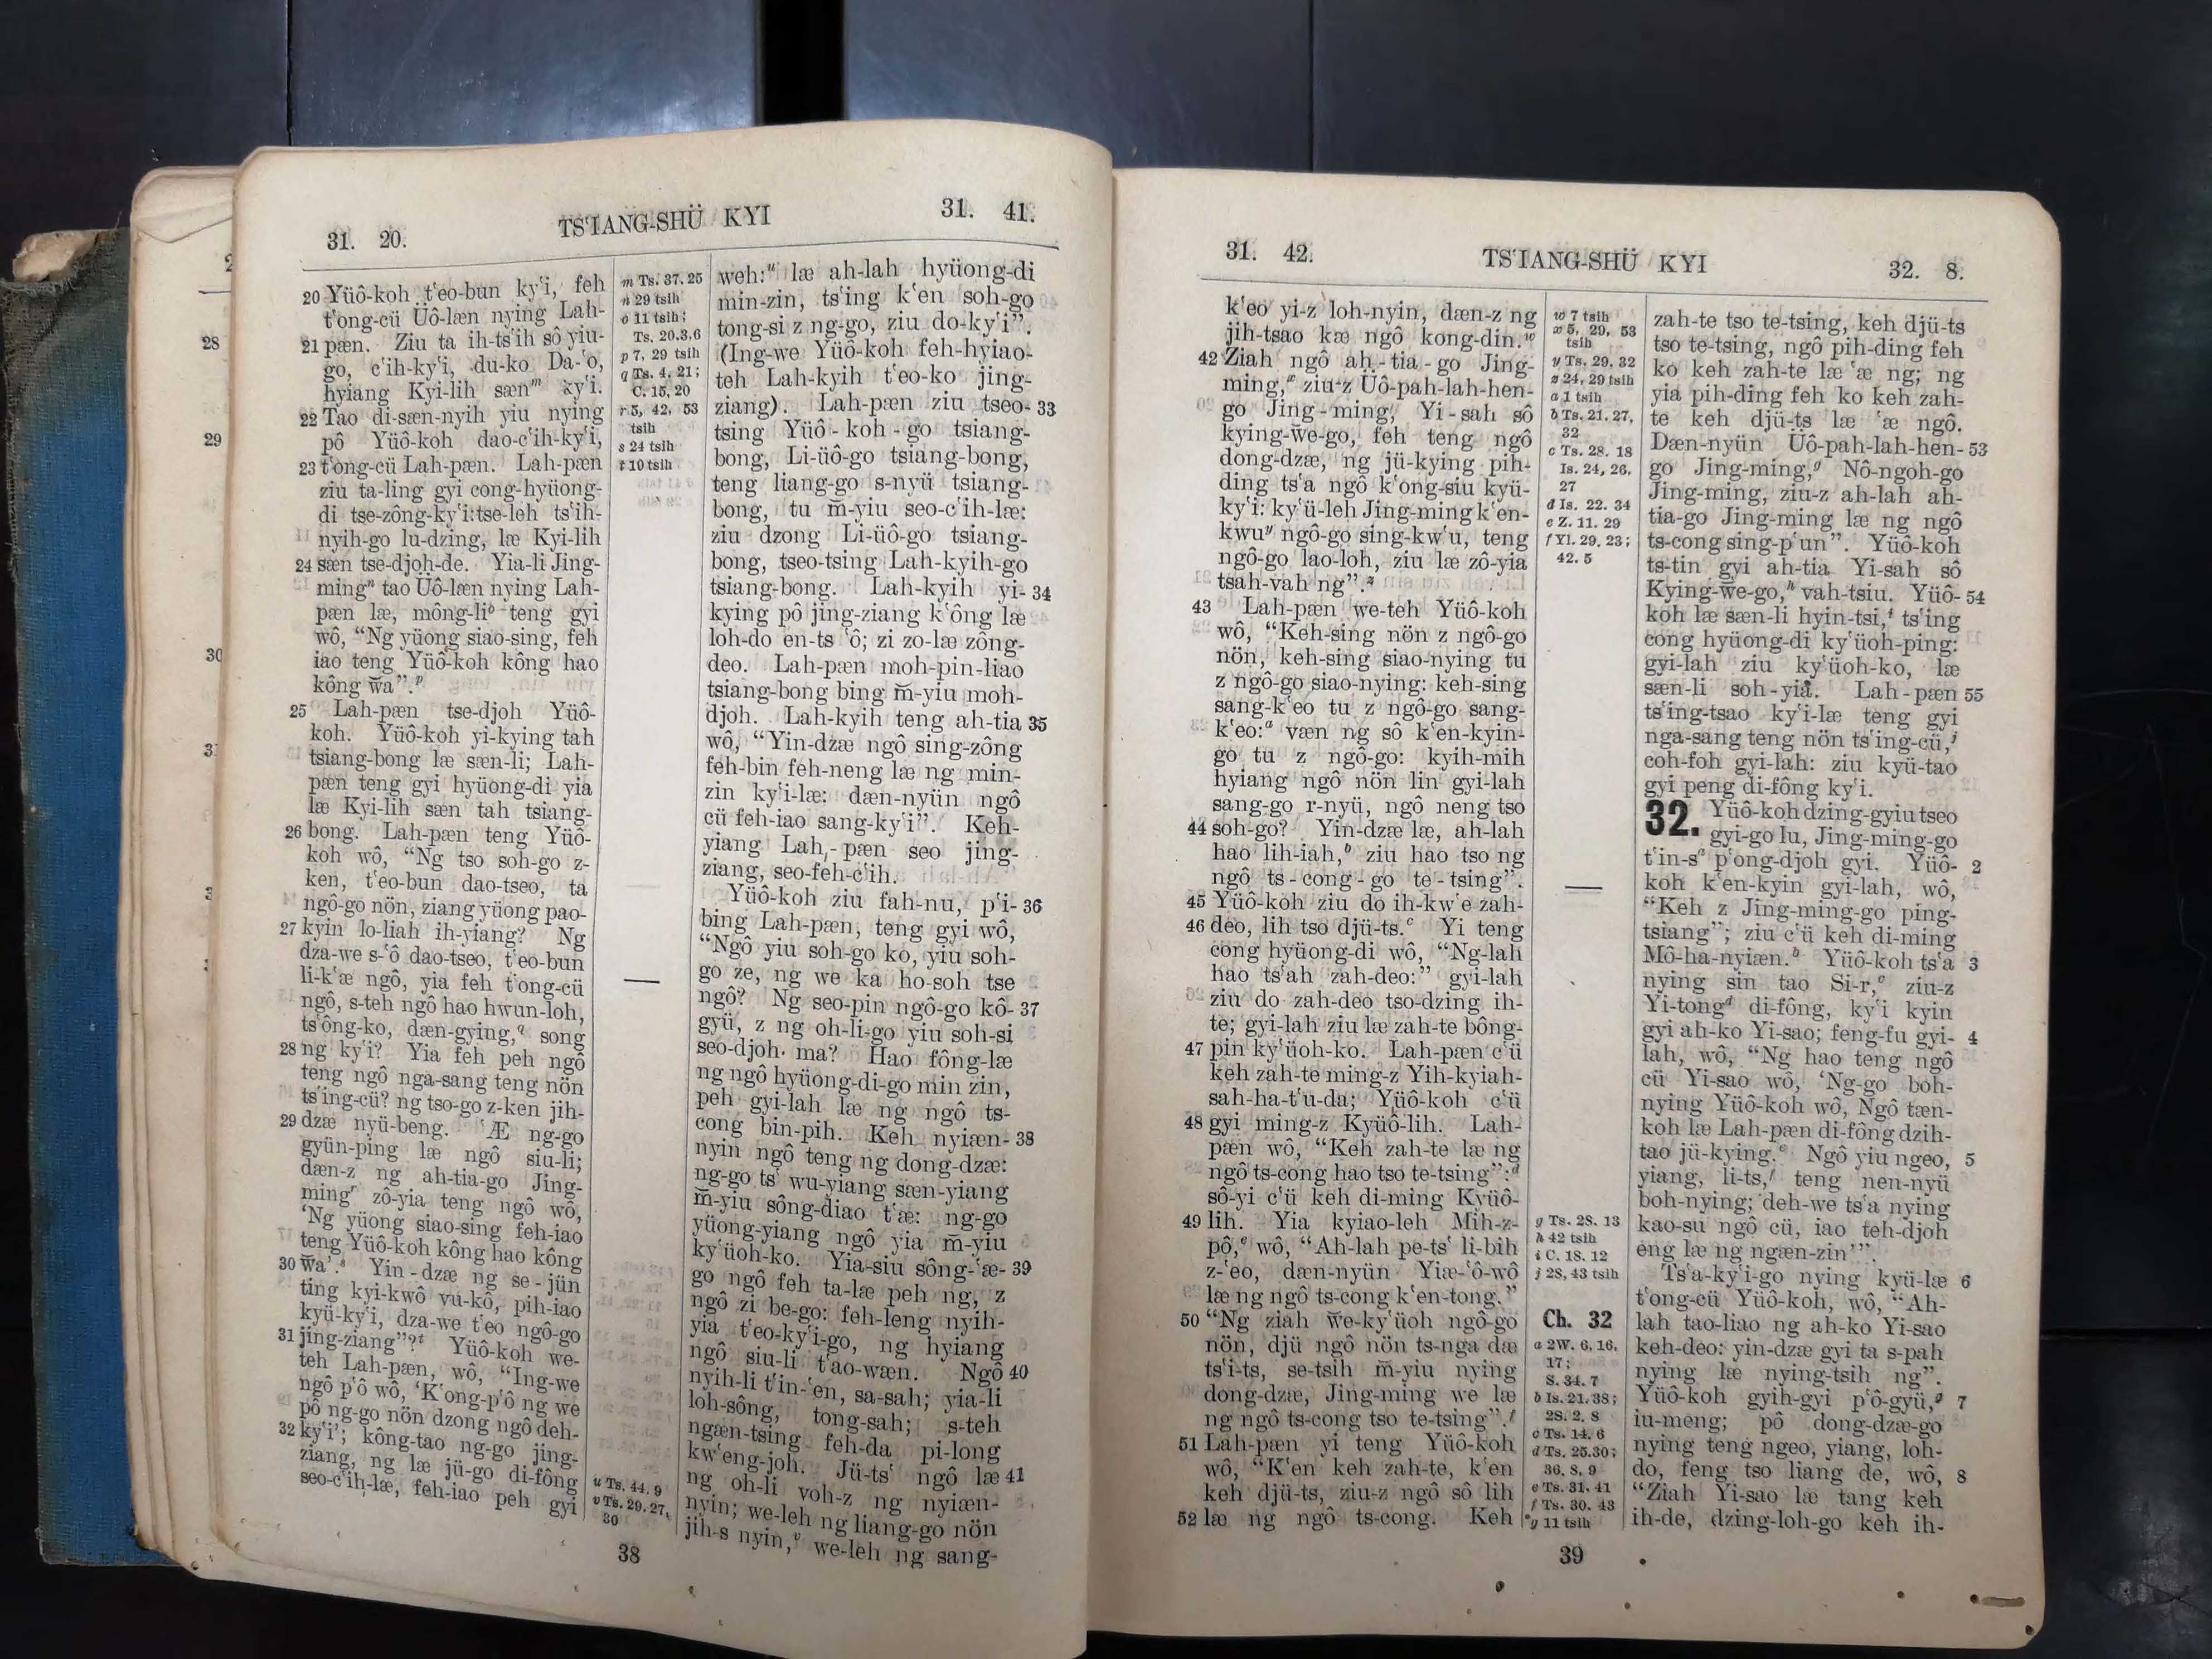 31. 20.
TSʻIANG-SHÜ KYI
31. 41.
20 Yüô-koh tʻeo-bun kyʻi, feh
tʻong-cü Üô-læn nying Lah-
21 pæn. Ziu ta ih-tsʻih sô yiu-
go, cʻih-kyʻi, du-ko Da-ʻo,
hyiang Kyi-lih sænᵐ kyʻi.
22 Tao di-sæn-nyih yiu nying
pô Yüô-koh dao-cʻih-kyʻi,
23 tʻong-cü Lah-pæn. Lah-pæn
ziu ta-ling gyi cong-hyüong-
di tse-zông-kyʻi: tse-leh tsʻih-
nyih-go lu-dzing, læ Kyi-lih
24 sæn tse-djoh-de. Yia-li Jing-
mingⁿ tao Üô-læn nying Lah-
pæn læ, mông-liᵒ teng gyi
wô, “Ng yüong siao-sing, feh
iao teng Yüô-koh kông hao
kông w̄a”.ᵖ
25 Lah-pæn tse-djoh Yüô-
koh. Yüô-koh yi-kying tah
tsiang-bong læ sæn-li; Lah-
pæn teng gyi hyüong-di yia
læ Kyi-lih sæn tah tsiang-
26 bong. Lah-pæn teng Yüô-
koh wô, “Ng tso soh-go z-
ken, tʻeo-bun dao-tseo, ta
ngô-go nön, ziang yüong pao-
27 kyin lo-liah ih-yiang? Ng
dza-we s-ʻô dao-tseo, tʻeo-bun
li-kʻæ ngô, yia feh tʻong-cü
ngô, s-teh ngô hao hwun-loh,
tsʻông-ko, dæn-gying,ᑫ song
28 ng kyʻi? Yia feh peh ngô
teng ngô nga-sang teng nön
tsʻing-cü? ng tso-go z-ken jih-
29 dzæ nyü-beng. ʻÆ ng-go
gyün-ping læ ngô siu-li;
dæn-z ng ah-tia-go Jing-
mingʳ zô-yia teng ngô wô,
‘Ng yüong siao-sing feh-iao
teng Yüô-koh kông hao kông
30 w̄a’.ˢ Yin-dzæ ng se-jün
ting kyi-kwô vu-kô, pih-iao
kyü-kyʻi, dza-we tʻeo ngô-go
31 jing-ziang”?ᵗ Yüô-koh we-
teh Lah-pæn, wô, “Ing-we
ngô pʻô wô, ‘Kʻong-pʻô ng we
pô ng-go nön dzong ngô deh-
32 kyʻi’; kông-tao ng-go jing-
ziang, ng læ jü-go di-fông
seo-cʻih-læ, feh-iao peh gyi
m Ts. 37. 25
n 29 tsih
o 11 tsih;
Ts. 20.3,6
p 7, 29 tsih
q Ts. 4. 21;
C. 15, 20
r 5, 42, 53
tsih
s 24 tsih
t 10 tsih
u Ts. 44. 9
v Ts. 29. 27,
30
weh:ᵘ læ ah-lah hyüong-di
min-zin, tsʻing kʻen soh-go
tong-si z ng-go, ziu do-kyʻi”.
(Ing-we Yüô-koh feh-hyiao-
teh Lah-kyih tʻeo-ko jing-
ziang). Lah-pæn ziu tseo- 33
tsing Yüô-koh-go tsiang-
bong, Li-üô-go tsiang-bong,
teng liang-go s-nyü tsiang-
bong, tu m̄-yiu seo-cʻih-læ:
ziu dzong Li-üô-go tsiang-
bong, tseo-tsing Lah-kyih-go
tsiang-bong. Lah-kyih yi- 34
kying pô jing-ziang kʻông læ
loh-do en-ts ʻô; zi zo-læ zông-
deo. Lah-pæn moh-pin-liao
tsiang-bong bing m̄-yiu moh-
djoh. Lah-kyih teng ah-tia 35
wô, “Yin-dzæ ngô sing-zông
feh-bin feh-neng læ ng min-
zin kyʻi-læ: dæn-nyün ngô
cü feh-iao sang-kyʻi”. Keh-
yiang Lah-pæn seo jing-
ziang, seo-feh-cʻih.
Yüô-koh ziu fah-nu, pʻi- 36
bing Lah-pæn, teng gyi wô,
“Ngô yiu soh-go ko, yiu soh-
go ze, ng we ka ho-soh tse
ngô? Ng seo-pin ngô-go kô- 37
gyü, z ng oh-li-go yiu soh-si
seo-djoh ma? Hao fông-læ
ng ngô hyüong-di-go min zin,
peh gyi-lah læ ng ngô ts-
cong bin-pih. Keh nyiæn- 38
nyin ngô teng ng dong-dzæ:
ng-go tsʻ wu-yiang sæn-yiang
m̄-yiu sông-diao tʻæ: ng-go
yüong-yiang ngô yia m̄-yiu
kyʻüoh-ko. Yia-siu sông-ʻæ- 39
go ngô feh ta-læ peh ng, z
ngô zi be-go: feh-leng nyih-
yia tʻeo-kyʻi-go, ng hyiang
ngô siu-li tʻao-wæn. Ngô 40
nyih-li tʻin-ʻen, sa-sah; yia-li
loh-sông, tong-sah; s-teh
ngæn-tsing feh-da pi-long
kwʻeng-joh. Jü-tsʻ ngô læ 41
ng oh-li voh-z ng nyiæn-
nyin; we-leh ng liang-go nön
jih-s nyin,ᵛ we-leh ng sang-
38
31. 42.
TSʻIANG-SHÜ KYI
32. 8.
kʻeo yi-z loh-nyin, dæn-z ng
jih-tsao kæ ngô kong-din.ʷ
42 Ziah ngô ah-tia-go Jing-
ming,ˣ ziu-z Üô-pah-lah-hen-
go Jing-ming, Yi-sah sô
kying-w̄e-go, feh teng ngô
dong-dzæ, ng jü-kying pih-
ding tsʻa ngô kʻong-siu kyü-
kyʻi: kyʻü-leh Jing-ming kʻen-
kwuʸ ngô-go sing-kwʻu, teng
ngô-go lao-loh, ziu læ zô-yia
tsah-vah ng”.ᶻ
43 Lah-pæn we-teh Yüô-koh
wô, “Keh-sing nön z ngô-go
nön, keh-sing siao-nying tu
z ngô-go siao-nying: keh-sing
sang-kʻeo tu z ngô-go sang-
kʻeo:ᵃ væn ng sô kʻen-kyin-
go tu z ngô-go: kyih-mih
hyiang ngô nön lin gyi-lah
sang-go r-nyü, ngô neng tso
44 soh-go? Yin-dzæ læ, ah-lah
hao lih-iah,ᵇ ziu hao tso ng
ngô ts-cong-go te-tsing”.
45 Yüô-koh ziu do ih-kwʻe zah-
46 deo, lih tso djü-ts.ᶜ Yi teng
cong hyüong-di wô, “Ng-lah
hao tsʻah zah-deo:” gyi-lah
ziu do zah-deo tso-dzing ih-
te; gyi-lah ziu læ zah-te bông-
47 pin kyʻüoh-ko. Lah-pæn cʻü
keh zah-te ming-z Yih-kyiah-
sah-ha-tʻu-da; Yüô-koh cʻü
48 gyi ming-z Kyüô-lih. Lah-
pæn wô, “Keh zah-te læ ng
ngô ts-cong hao tso te-tsing”:ᵈ
sô-yi cʻü keh di-ming Kyüô-
49 lih. Yia kyiao-leh Mih-z-
pô,ᵉ wô, “Ah-lah pe-tsʻ li-bih
z-ʻeo, dæn-nyün Yiæ-ʻô-wô
læ ng ngô ts-cong kʻen-tong.”
50 “Ng ziah w̄e-kyʻüoh ngô-go
nön, djü ngô nön ts-nga dæ
tsʻi-ts, se-tsih m̄-yiu nying
dong-dzæ, Jing-ming we læ
ng ngô ts-cong tso te-tsing”.ᶠ
51 Lah-pæn yi teng Yüô-koh
wô, “Kʻen keh zah-te, kʻen
keh djü-ts, ziu-z ngô sô lih
52 læ ng ngô ts-cong. Keh
w 7 tsih
x 5, 29, 53
tsih
y Ts. 29. 32
z 24, 29 tsih
a 1 tsih
b Ts. 21. 27,
32
c Ts. 28. 18
Is. 24, 26,
27
d Is. 22. 34
e Z. 11. 29
f YI. 29. 23;
42. 5
g Ts. 28. 13
h 42 tsih
i C. 18. 12
j 28, 43 tsih
Ch. 32
a 2W. 6. 16,
17;
S. 34. 7
b Is. 21. 38;
2S. 2. 8
c Ts. 14. 6
d Ts. 25.30;
36. 8, 9
e Ts. 31. 41
f Ts. 30. 43
g 11 tsih
zah-te tso te-tsing, keh djü-ts
tso te-tsing, ngô pih-ding feh
ko keh zah-te læ ʻæ ng; ng
yia pih-ding feh ko keh zah-
te keh djü-ts læ ʻæ ngô.
Dæn-nyün Üô-pah-lah-hen- 53
go Jing-ming,ᵍ Nô-ngoh-go
Jing-ming, ziu-z ah-lah ah-
tia-go Jing-ming læ ng ngô
ts-cong sing-pʻun”. Yüô-koh
ts-tin gyi ah-tia Yi-sah sô
Kying-w̄e-go,ʰ vah-tsiu. Yüô- 54
koh læ sæn-li hyin-tsi,ⁱ tsʻing
cong hyüong-di kyʻüoh-ping:
gyi-lah ziu kyʻüoh-ko, læ
sæn-li soh-yia. Lah-pæn 55
tsʻing-tsao kyʻi-læ teng gyi
nga-sang teng nön tsʻing-cü,ʲ
coh-foh gyi-lah: ziu kyü-tao
gyi peng di-fông kyʻi.
32. Yüô-koh dzing-gyiu tseo
gyi-go lu, Jing-ming-go
tʻin-sᵃ pʻong-djoh gyi. Yüô- 2
koh kʻen-kyin gyi-lah, wô,
“Keh z Jing-ming-go ping-
tsiang”; ziu cʻü keh di-ming
Mô-ha-nyiæn.ᵇ Yüô-koh tsʻa 3
nying sin tao Si-r,ᶜ ziu-z
Yi-tongᵈ di-fông, kyʻi kyin
gyi ah-ko Yi-sao; feng-fu gyi- 4
lah, wô, “Ng hao teng ngô
cü Yi-sao wô, ‘Ng-go boh-
nying Yüô-koh wô, Ngô tæn-
koh læ Lah-pæn di-fông dzih-
tao jü-kying.ᵉ Ngô yiu ngeo, 5
yiang, li-ts,ᶠ teng nen-nyü
boh-nying; deh-we tsʻa nying
kao-su ngô cü, iao teh-djoh
eng læ ng ngæn-zin’”.
Tsʻa-kyʻi-go nying kyü-læ 6
tʻong-cü Yüô-koh, wô, “Ah-
lah tao-liao ng ah-ko Yi-sao
keh-deo: yin-dzæ gyi ta s-pah
nying læ nying-tsih ng”.
Yüô-koh gyih-gyi pʻô-gyü,ᵍ 7
iu-meng; pô dong-dzæ-go
nying teng ngeo, yiang, loh-
do, feng tso liang de, wô, 8
“Ziah Yi-sao læ tang keh
ih-de, dzing-loh-go keh ih-
39